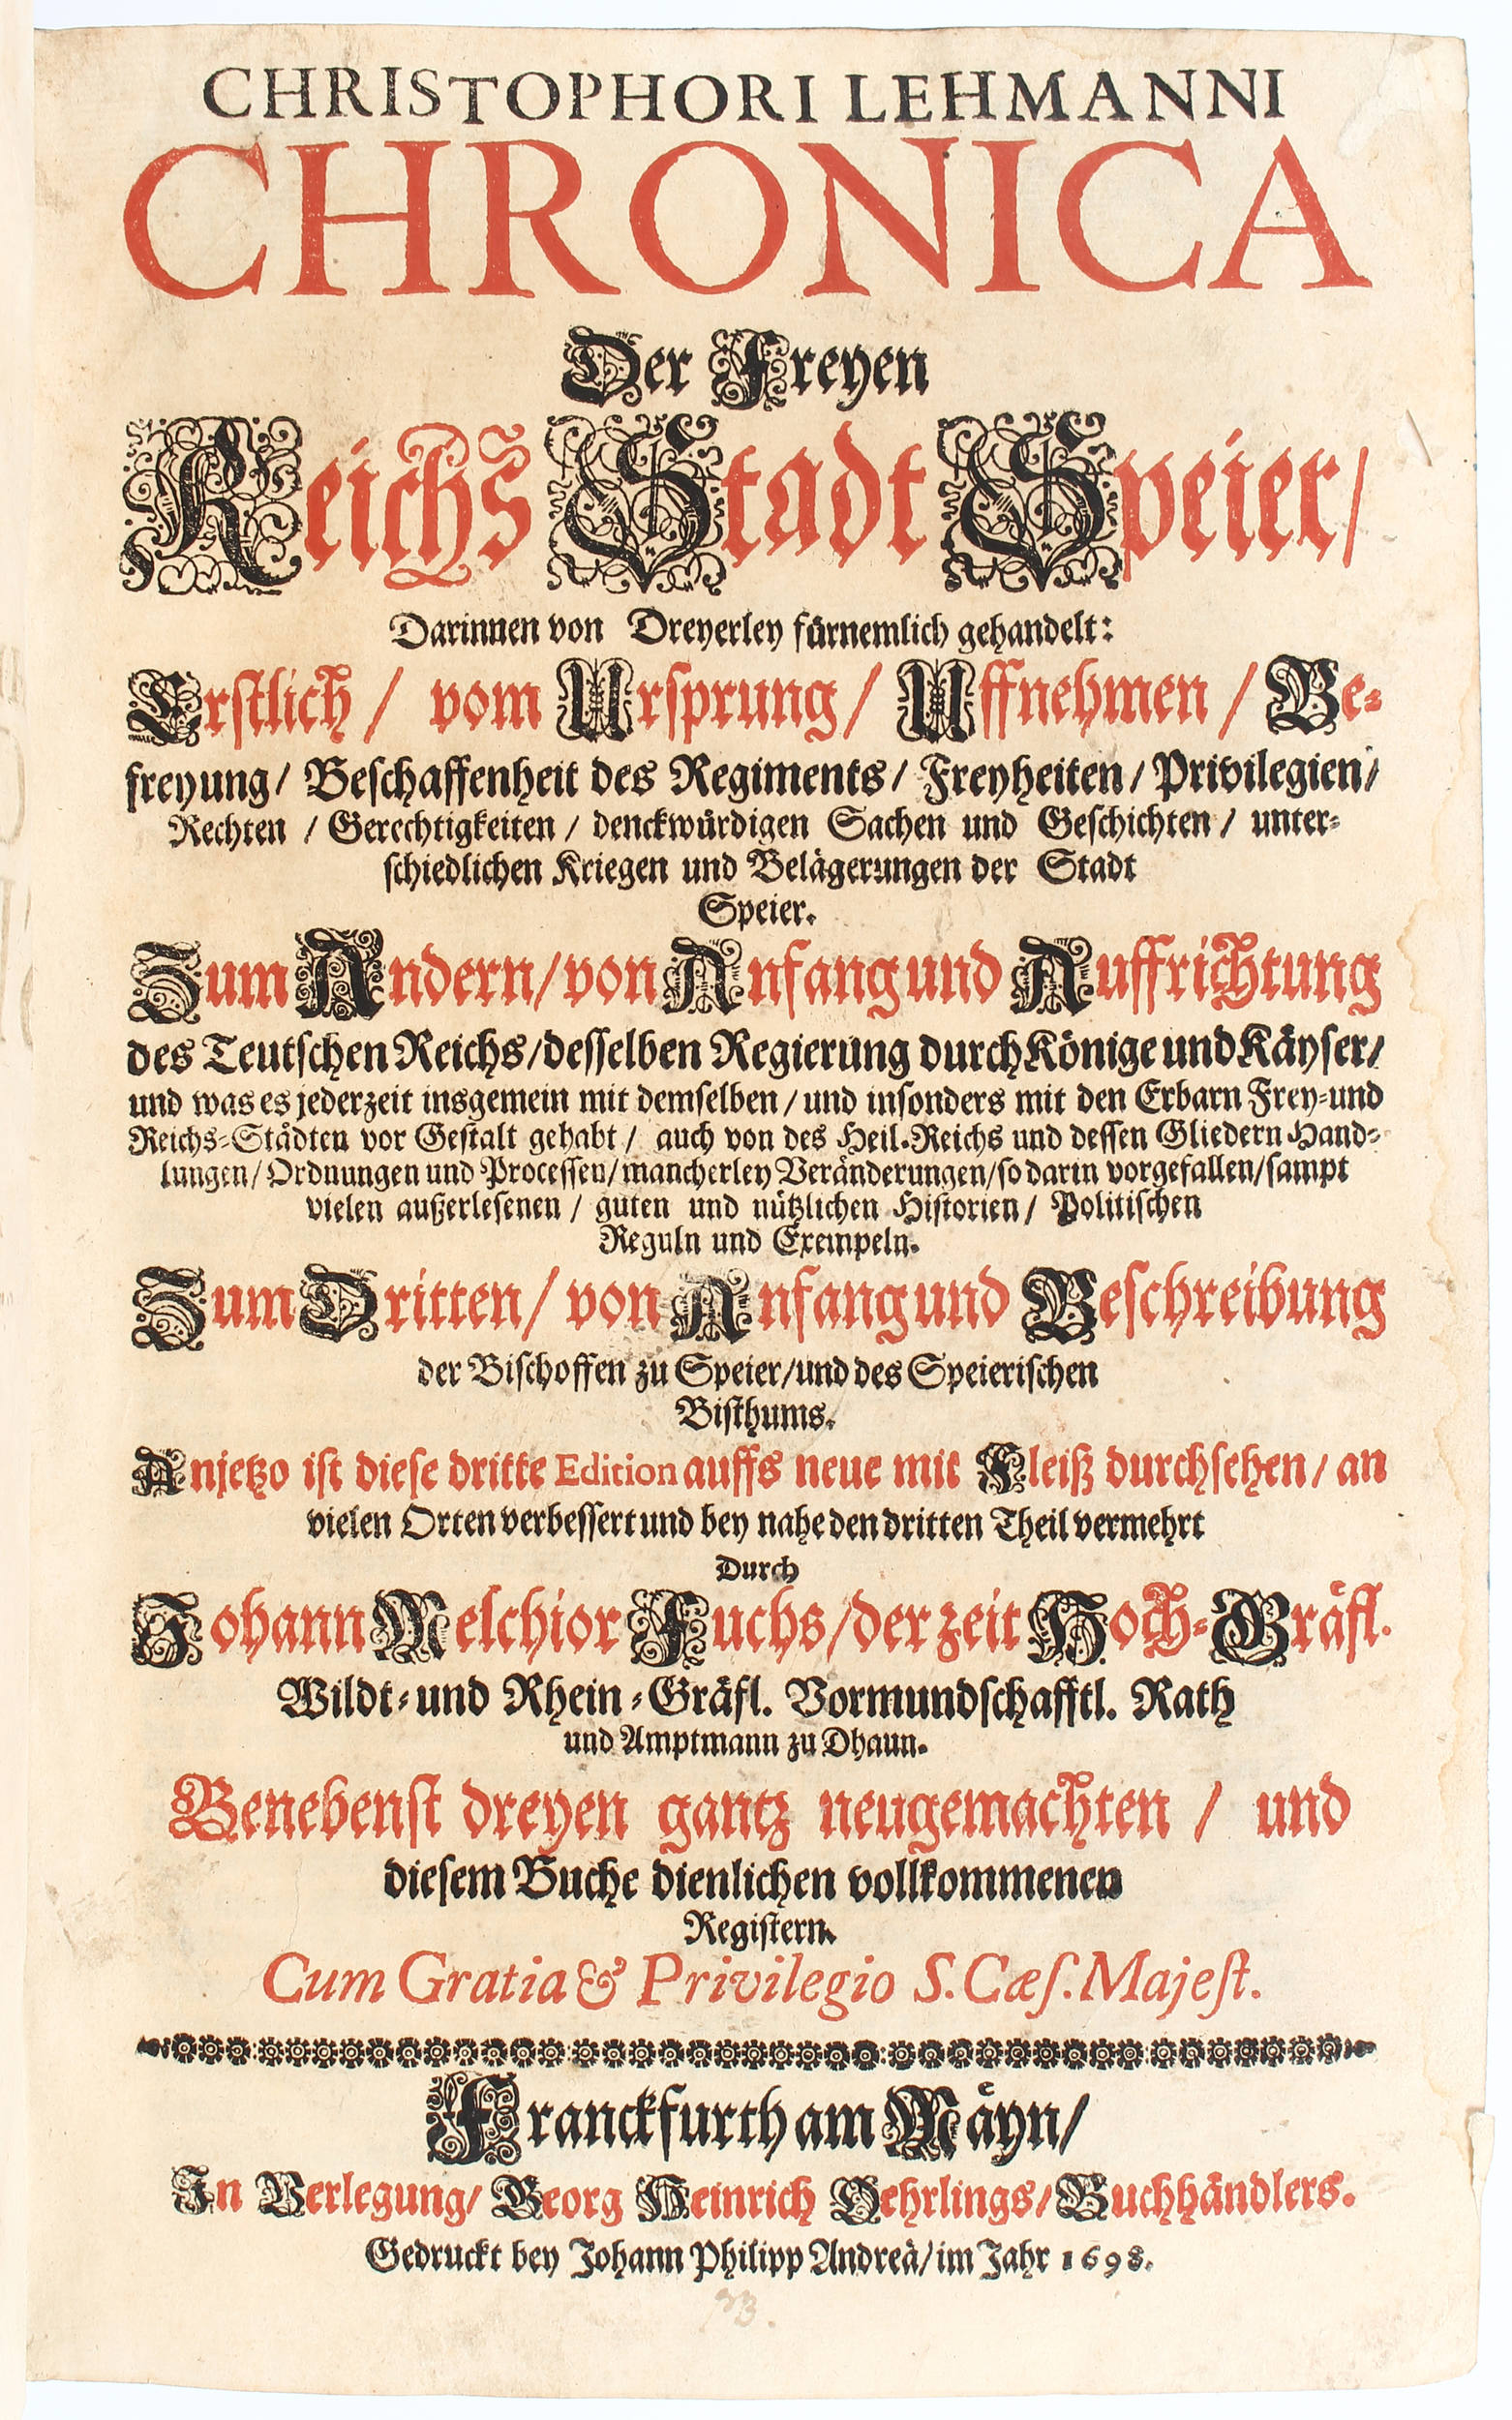 CHRISTOPHORI LEHMANNI
CHRONICA
Der Freyen
Reichs Stadt Speier/
Darinnen von Dreyerley fürnemlich gehandelt:
Erstlich / vom Ursprung / Uffnehmen / Be-
freyung / Beschaffenheit des Regiments / Freyheiten / Privilegien /
Rechten / Gerechtigkeiten / denckwürdigen Sachen und Geschichten / unter-
schiedlichen Kriegen und Belägerungen der Stadt
Speier.
Zum Andern / von Anfang und Auffrichtung
des Teutschen Reichs / desselben Regierung durch Könige und Käyser /
und was es jederzeit insgemein mit demselben / und insonders mit den Erbarn Frey-und
Reichs-Städten vor Gestalt gehabt / auch von des Heil. Reichs und dessen Gliedern Hand-
lungen / Ordnungen und Processen / mancherley Veränderungen / so darin vorgefallen / sampt
vielen außerlesenen / guten und nützlichen Historien / Politischen
Reguln und Exempeln.
Zum Dritten / von Anfang und Beschreibung
der Bischoffen zu Speier / und des Speierischen
Bisthums.
Anjetzo ist diese dritte Edition auffs neue mit Fleiß durchsehen / an
vielen Orten verbessert und bey nahe den dritten Theil vermehrt
Durch
Johann Melchior Fuchs / der zeit Hoch-Gräfl.
Wildt-und Rhein-Gräfl. Vormundschafftl. Rath
und Amptmann zu Dhaun.
Benebenst dreyen gantz neugemachten / und
diesem Buche dienlichen vollkommenen
Registern.
Cum Gratia & Privilegio S. Cæs. Majest.
Franckfurth am Mäyn /
In Verlegung / Georg Heinrich Oehrlings / Buchhändlers.
Gedruckt bey Johann Philipp Andreä / im Jahr 1698.